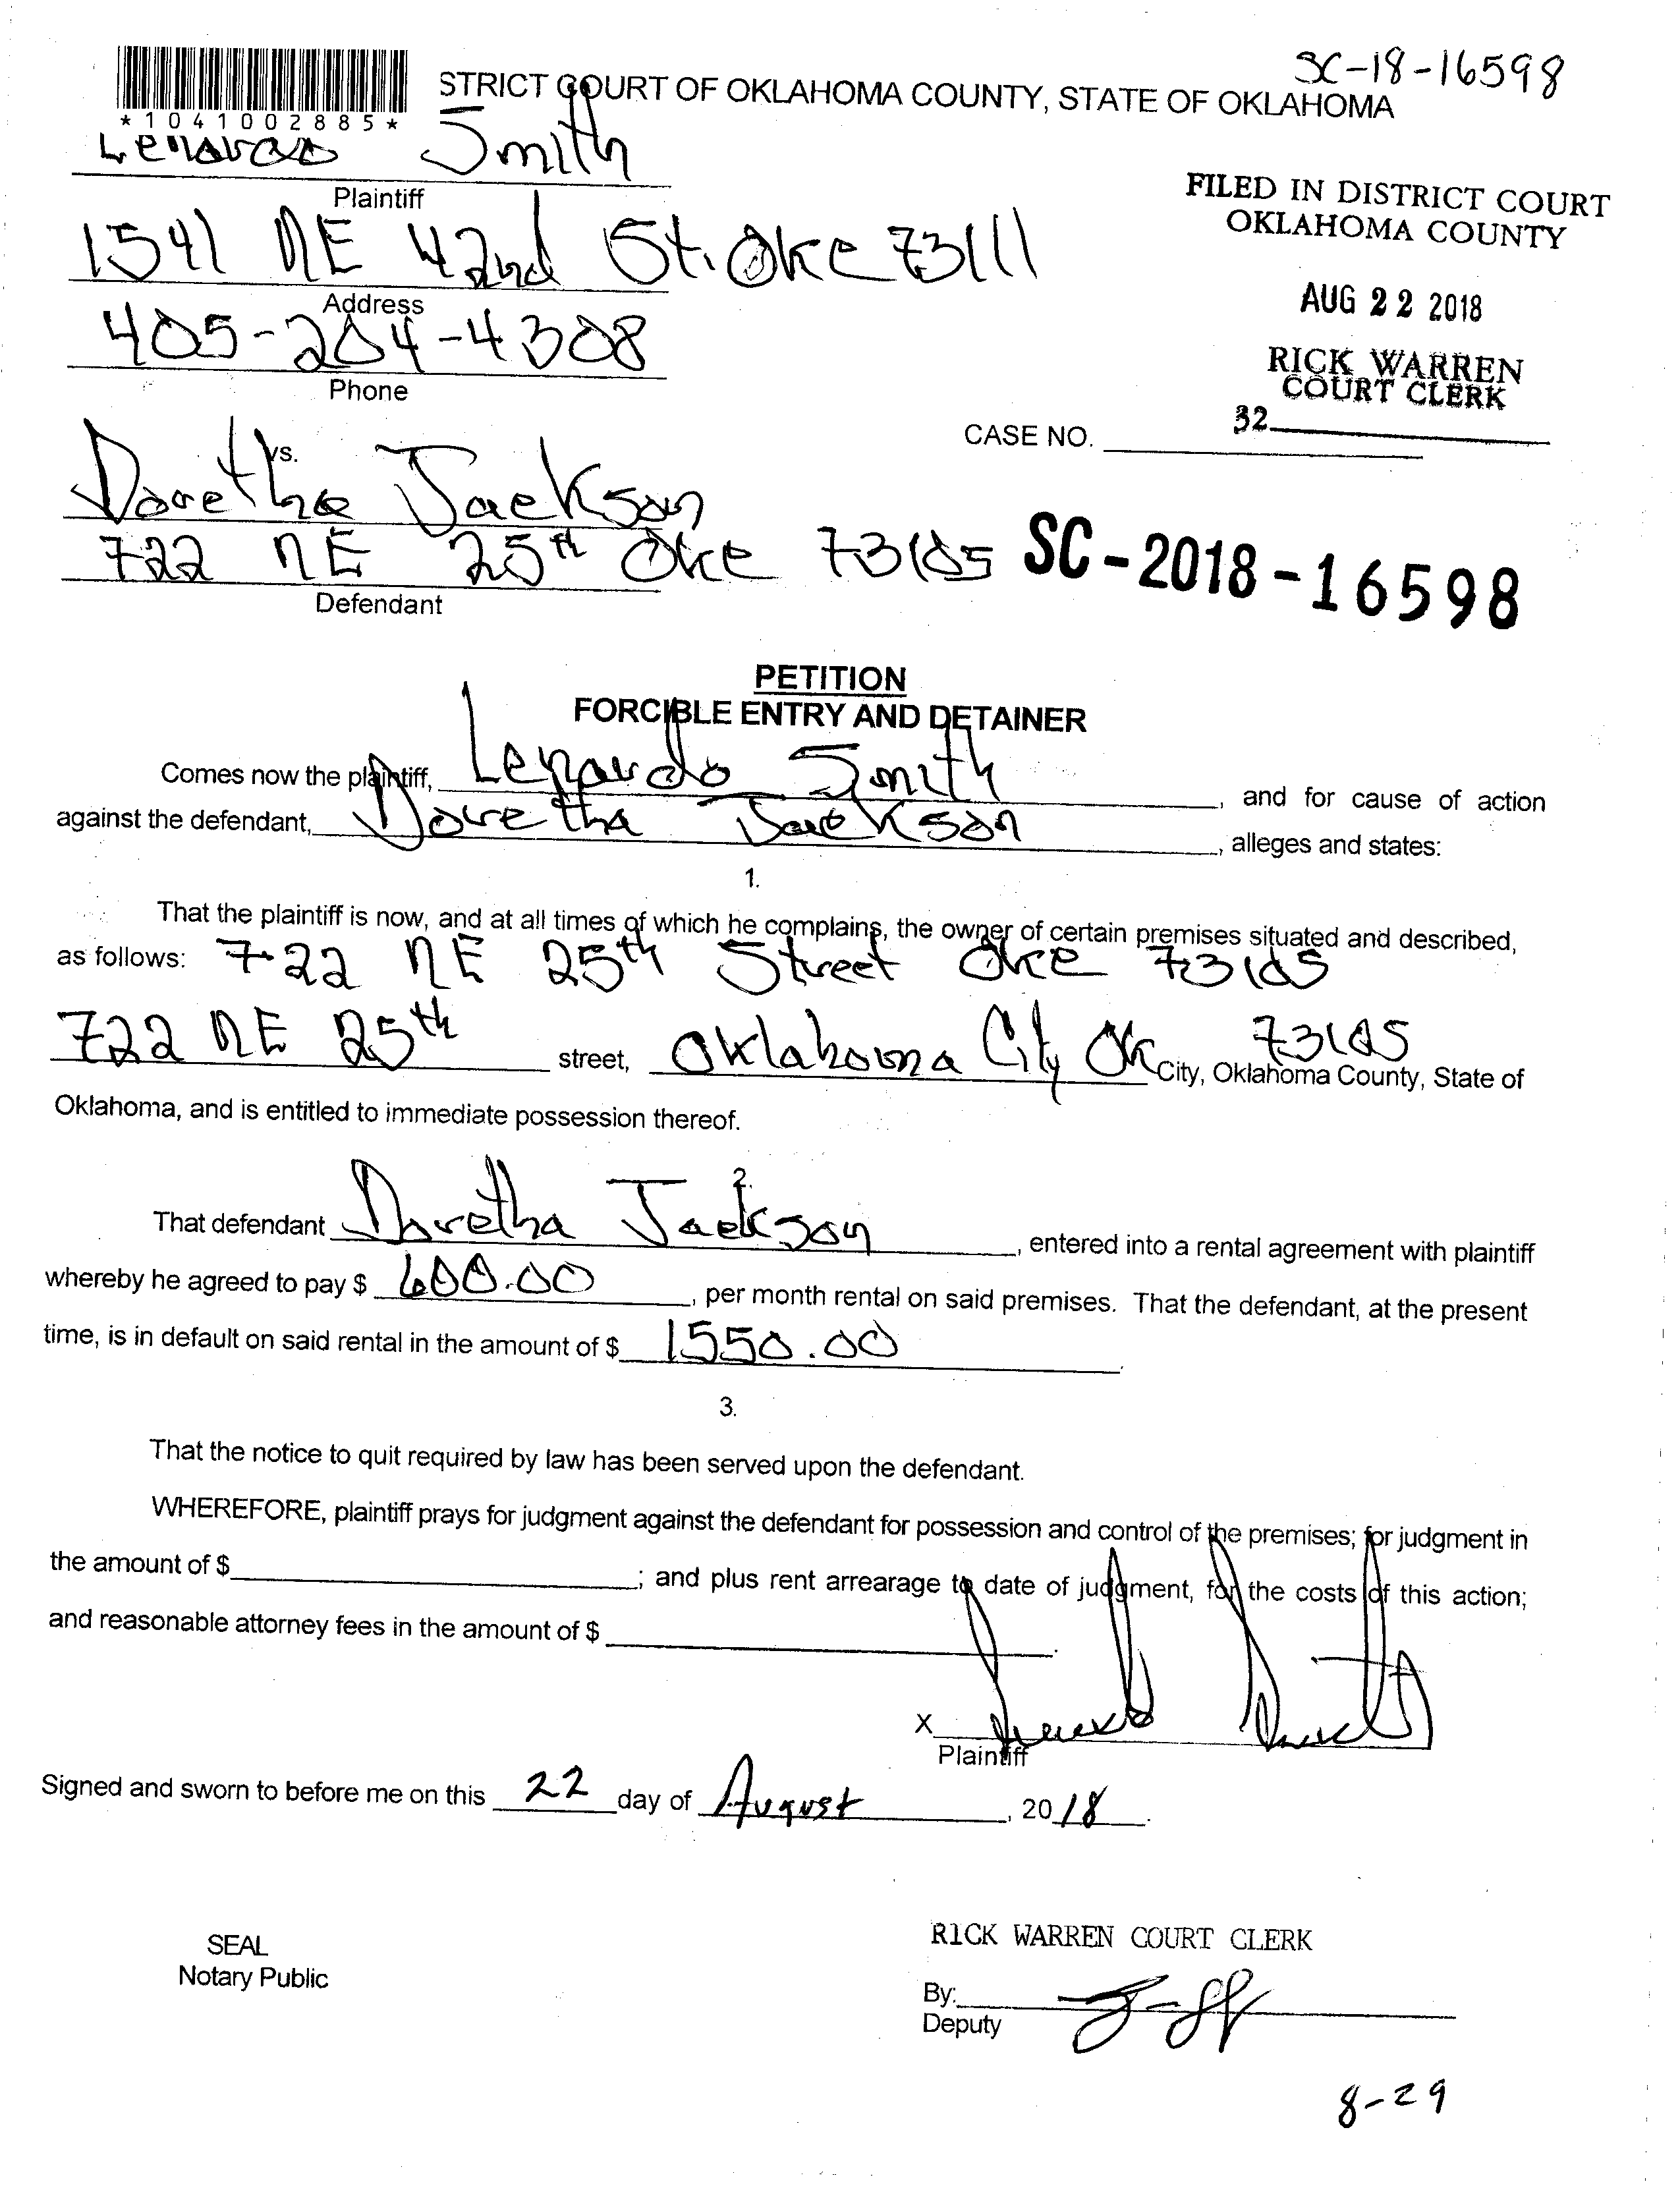 SC-18-16598
STRICT COURT OF OKLAHOMA COUNTY, STATE OF OKLAHOMA
*1041002885*
Lenardo Smith
Plaintiff
FILED IN DISTRICT COURT
OKLAHOMA COUNTY
1541 NE 42nd St. OKC 73111
Address
AUG 22 2018
405-204-4308
Phone
RICK WARREN
COURT CLERK
32
CASE NO.
vs.
Doretha Jackson
722 NE 25th OKC 73105
SC-2018-16598
Defendant
PETITION
FORCIBLE ENTRY AND DETAINER
Comes now the plaintiff, Lenardo Smith, and for cause of action
against the defendant, Doretha Jackson, alleges and states:
1.
That the plaintiff is now, and at all times of which he complains, the owner of certain premises situated and described,
as follows: 722 NE 25th Street OKC 73105
722 NE 25th street, Oklahoma City OK 73105 City, Oklahoma County, State of
Oklahoma, and is entitled to immediate possession thereof.
2.
That defendant Doretha Jackson, entered into a rental agreement with plaintiff
whereby he agreed to pay $ 600.00, per month rental on said premises. That the defendant, at the present
time, is in default on said rental in the amount of $ 1550.00.
3.
That the notice to quit required by law has been served upon the defendant.
WHEREFORE, plaintiff prays for judgment against the defendant for possession and control of the premises; for judgment in
the amount of $ ; and plus rent arrearage to date of judgment, for the costs of this action;
and reasonable attorney fees in the amount of $ .
X
Plaintiff
Signed and sworn to before me on this 22 day of August, 2018.
SEAL
Notary Public
RICK WARREN COURT CLERK
By:
Deputy
8-29